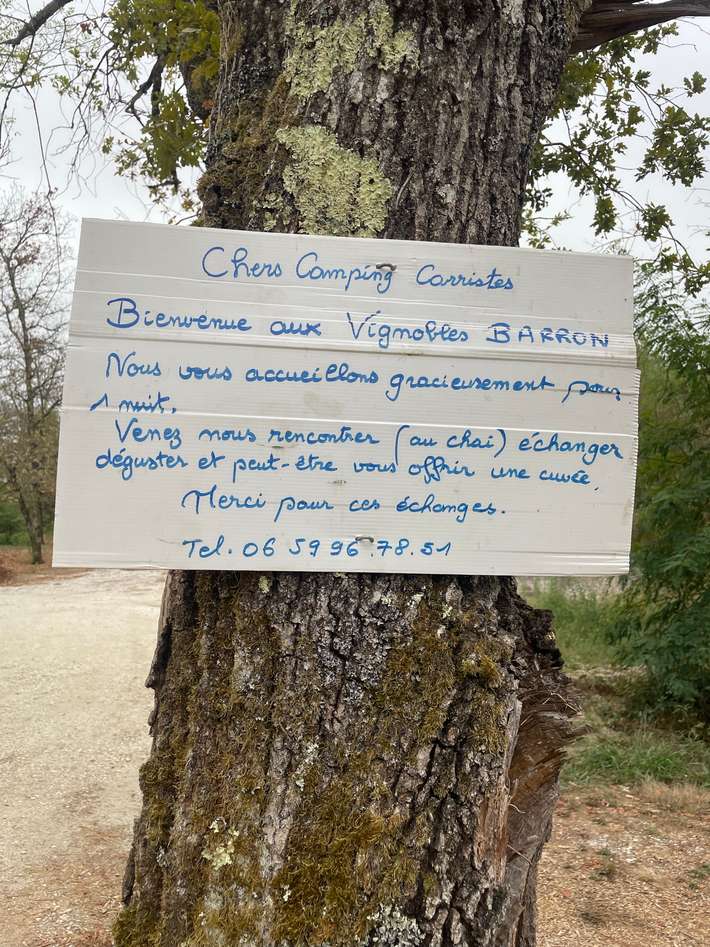 Chers Camping Carristes
Bienvenue aux Vignobles BARRON
Nous vous accueillons gracieusement pour
1 nuit.
Venez nous rencontrer (au chai) échanger
déguster et peut-être vous offrir une cuvée.
Merci pour ces échanges.
Tel. 06 59 96.78.51